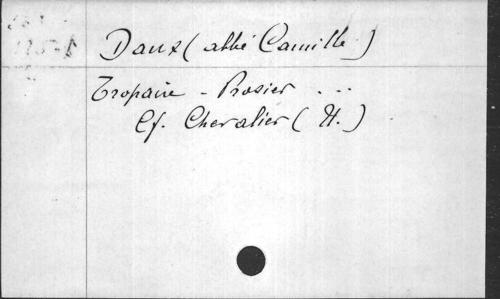 Daux (abbé Camille)
Tropaire - Prosier ...
Cf. Chevalier (U.)